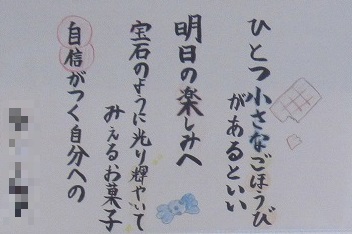 ひとつ小さなごほうび
があるといい
明日の楽しみへ
宝石のように光り輝やいて
みえるお菓子
自信がつく自分への